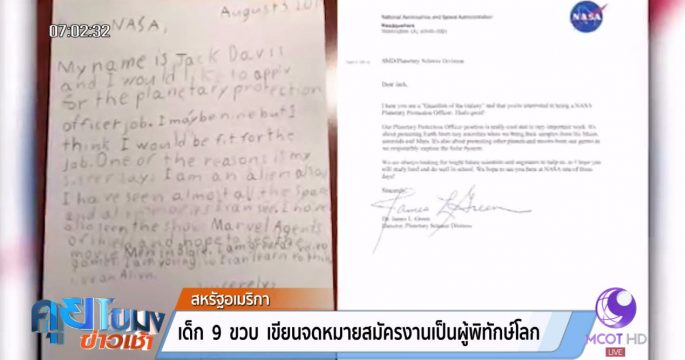 07:02:32
August 3 201
NASA,
My name is Jack Davis
and I would like to apply
for the planetary protection
officer job. I may be nine but I
think I would be fit for the
job. One of the reasons is my
sister says I am an alien also
I have seen almost all the space
and alien movies I can see. I have
also seen the show Marvel Agents
of Shield and hope to see the
movie Men in Black. I am great at video
games. I am young, so I can learn to think
like an Alien.
Sincerely,
National Aeronautics and Space Administration
Headquarters
Washington, DC
NASA
SMD/Planetary Science Division
Dear Jack,
I hear you are a "Guardian of the Galaxy" and that you're interested in being a NASA
Planetary Protection Officer. That's great!
Our Planetary Protection Officer position is really cool and is very important work. It's
about protecting Earth from tiny microbes when we bring back samples from the Moon,
asteroids and Mars. It's also about protecting other planets and moons from our germs as
we responsibly explore the Solar System.
We are always looking for bright future scientists and engineers to help us, so I hope you
will study hard and do well in school. We hope to see you here at NASA one of these
days!
Sincerely,
James L Green
Dr. James L. Green
Director, Planetary Science Division
สหรัฐอเมริกา
คุยโขมงข่าวเช้า
เด็ก 9 ขวบ เขียนจดหมายสมัครงานเป็นผู้พิทักษ์โลก
MCOT HD
LIVE